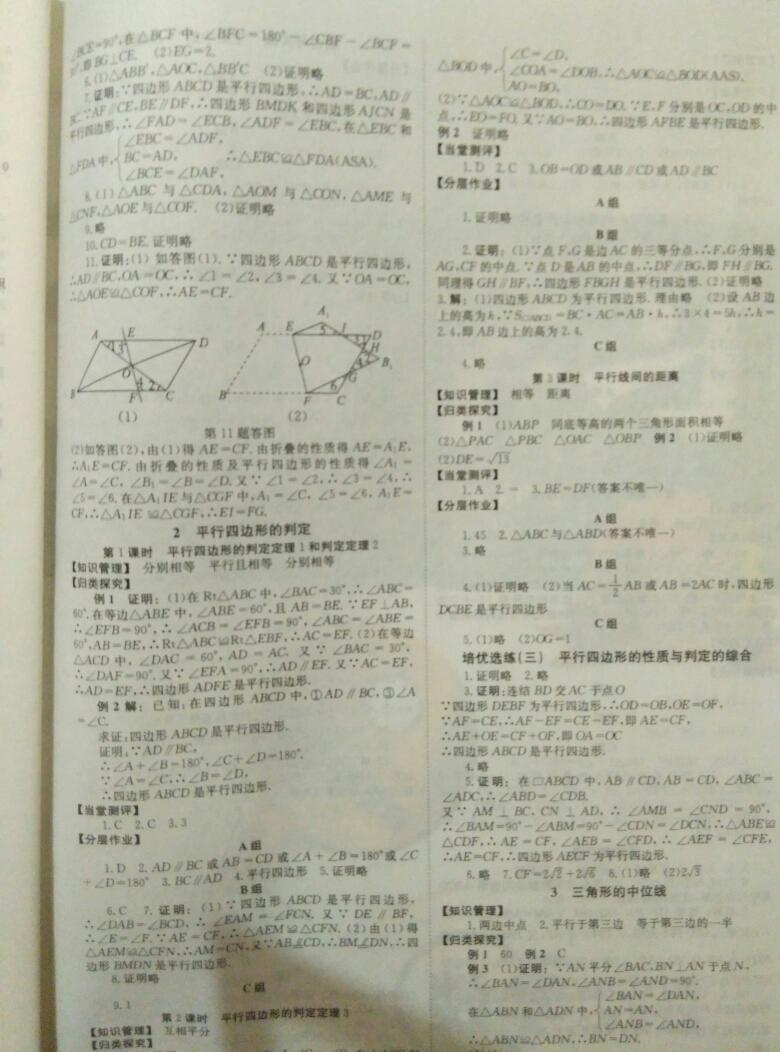 ∠BCE=90°,在△BCF 中,∠BFC=180°-∠CBF-∠BCF=
即BG⊥CE. (2)EG=2.
6.(1)△ABB′,△AOC,△BB′C (2)证明略
7.证明:∵四边形 ABCD 是平行四边形,∴AD=BC,AD∥
BC.∵AF∥CE,BE∥DF,∴四边形 BMDK 和四边形 AJCN 是
平行四边形,∴∠FAD=∠ECB,∠ADF=∠EBC,在△EBC 和
△FDA 中,
∠EBC=∠ADF,
BC=AD,
∠BCE=∠DAF,
∴△EBC≌△FDA(ASA).
8.(1)△ABC 与△CDA,△AOM 与△CON,△AME 与
△CNF,△AOE 与△COF. (2)证明略
9.略
10.CD=BE.证明略
11.证明:(1) 如答图(1).∵四边形 ABCD 是平行四边形,
∴AD∥BC,OA=OC,∴∠1=∠2,∠3=∠4.又∵OA=OC,
∴△AOE≌△COF,∴AE=CF.
A E D
O
B F C
(1)
A E A₁ I D
H B₁
O G
B F C
(2)
第 11 题答图
(2)如答图(2),由(1)得 AE=CF.由折叠的性质得 AE=A₁E,
∴A₁E=CF.由折叠的性质及平行四边形的性质得∠A₁=
∠A=∠C,∠B₁=∠B=∠D.又∵∠1=∠2,∴∠3=∠4,∴
∠5=∠6.在△A₁IE 与△CGF 中,A₁=∠C,∠5=∠6,A₁E=
CF,∴△A₁IE≌△CGF,∴EI=FG.
2 平行四边形的判定
第 1 课时 平行四边形的判定定理 1 和判定定理 2
【知识管理】 分别相等 平行且相等 分别相等
【归类探究】
例 1 证明:(1)在 Rt△ABC 中,∠BAC=30°,∴∠ABC=
60°.在等边△ABE 中,∠ABE=60°,且 AB=BE.∵EF⊥AB,
∴∠EFB=90°,∴∠ACB=∠EFB=90°,∠ABC=∠ABE=
60°,AB=BE,∴Rt△ABC≌Rt△EBF,∴AC=EF.(2)在等边
△ACD 中,∠DAC=60°,AD=AC.又∵∠BAC=30°,
∴∠DAF=90°.又∵∠EFA=90°,∴AD∥EF.又∵AC=EF,
∴AD=EF,∴四边形 ADFE 是平行四边形.
例 2 解:已知:在四边形 ABCD 中,①AD∥BC,③∠A
=∠C.
求证:四边形 ABCD 是平行四边形.
证明:∵AD∥BC,
∴∠A+∠B=180°,∠C+∠D=180°.
∵∠A=∠C,∴∠B=∠D,
∴四边形 ABCD 是平行四边形.
【当堂测评】
1.C 2.C 3.3
【分层作业】
A 组
1.D 2.AD∥BC 或 AB=CD 或∠A+∠B=180°或∠C
+∠D=180° 3.BC∥AD 4.平行四边形 5.证明略
B 组
6.C 7.证明:(1)∵四边形 ABCD 是平行四边形,
∴∠DAB=∠BCD,∴∠EAM=∠FCN.又∵DE∥BF,
∴∠E=∠F.∵AE=CF,∴△AEM≌△CFN.(2)由(1)得
△AEM≌△CFN,∴AM=CN,又∵AB∥CD,∴BM∥DN,∴四
边形 BMDN 是平行四边形.
8.证明略
C 组
9.1
第 2 课时 平行四边形的判定定理 3
【知识管理】 互相平分
【归类探究】
△BOD 中,
∠C=∠D,
∠COA=∠DOB,∴△AOC≌△BOD(AAS).
AO=BO,
(2)∵△AOC≌△BOD,∴CO=DO.∵E,F 分别是 OC,OD 的中
点,∴EO=FO.又∵AO=BO,∴四边形 AFBE 是平行四边形.
例 2 证明略
【当堂测评】
1.D 2.C 3.OB=OD 或 AB∥CD 或 AD∥BC
【分层作业】
A 组
1.证明略
B 组
2.证明:(1)∵点 F,G 是边 AC 的三等分点,∴F,G 分别是
AG,CF 的中点.∵点 D 是 AB 的中点,∴DF∥BG,即 FH∥BG.
同理得 GH∥BF,∴四边形 FBGH 是平行四边形.(2)证明略
3.解:(1)四边形 ABCD 为平行四边形.理由略 (2)设 AB 边
上的高为 h,∵S▱ABCD=BC·AC=AB·h,∴3×4=5h,∴h=
2.4,即 AB 边上的高为 2.4.
C 组
4.略
第 3 课时 平行线间的距离
【知识管理】 相等 距离
【归类探究】
例 1 (1)ABP 同底等高的两个三角形面积相等
(2)△PAC △PBC △OAC △OBP 例 2 (1)证明略
(2)DE=√13
【当堂测评】
1.A 2.= 3.BE=DF(答案不唯一)
【分层作业】
A 组
1.45 2.△ABC 与△ABD(答案不唯一)
3.略
B 组
4.(1)证明略 (2)当 AC=1/2 AB 或 AB=2AC 时,四边形
DCBE 是平行四边形
C 组
5.(1)略 (2)OG=1
培优选练(三) 平行四边形的性质与判定的综合
1.证明略 2.略
3.证明:连结 BD 交 AC 于点 O
∵四边形 DEBF 为平行四边形,∴OD=OB,OE=OF,
∵AF=CE,∴AF-EF=CE-EF,即 AE=CF,
∴AE+OE=CF+OF,即 OA=OC
∴四边形 ABCD 是平行四边形.
4.略
5.证明:在▱ABCD 中,AB∥CD,AB=CD,∠ABC=
∠ADC,∴∠ABD=∠CDB.
又∵AM⊥BC,CN⊥AD,∴∠AMB=∠CND=90°,
∴∠BAM=90°-∠ABM=90°-∠CDN=∠DCN,∴△ABE≌
△CDF,∴AE=CF,∠AEB=∠CFD,∴∠AEF=∠CFE,
∴AE=CF,∴四边形 AECF 为平行四边形.
6.略 7.CF=2√2+2√6 8.(1)略 (2)2√3
3 三角形的中位线
【知识管理】
1.两边中点 2.平行于第三边 等于第三边的一半
【归类探究】
例 1 60 例 2 C
例 3 (1)证明:∵AN 平分∠BAC,BN⊥AN 于点 N,
∴∠BAN=∠DAN,∠ANB=∠AND=90°.
在△ABN 和△ADN 中,
∠BAN=∠DAN,
AN=AN,
∠ANB=∠AND,
∴△ABN≌△ADN,∴BN=DN.